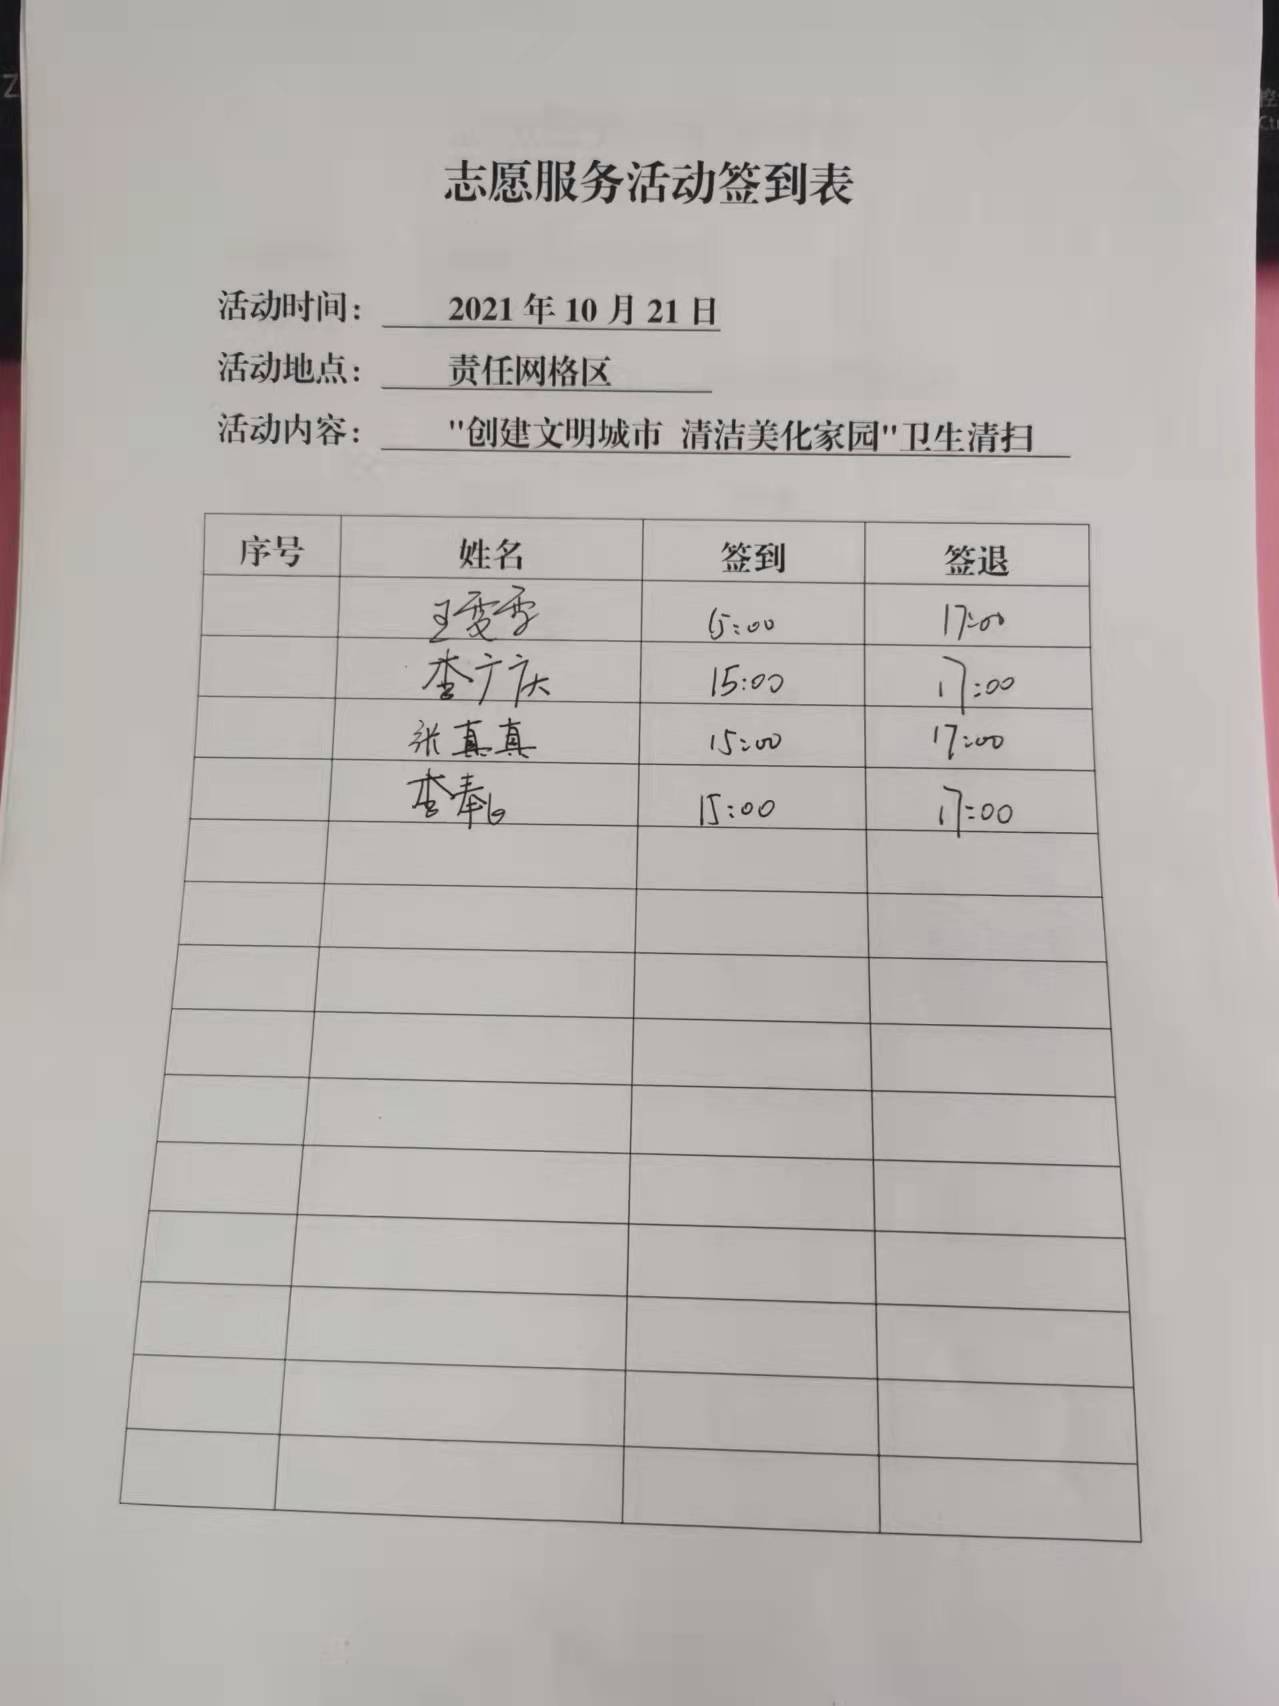 志愿服务活动签到表
活动时间： 2021 年 10 月 21 日
活动地点： 责任网格区
活动内容： "创建文明城市 清洁美化家园"卫生清扫
序号 姓名 签到 签退
王雯雪 15:00 17:00
李广庆 15:00 17:00
张真真 15:00 17:00
李奉 15:00 17:00